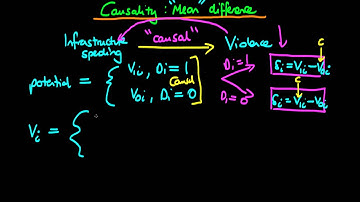 Causality : "Mean" difference
Infrastructure spending "causal" Violence
potential = { V1i , Di = 1
V0i , Di = 0
Causal
Di = 1
Di = 0
C
δi = V1i - V0i
C
δi = V1i - V0i
Vi = {